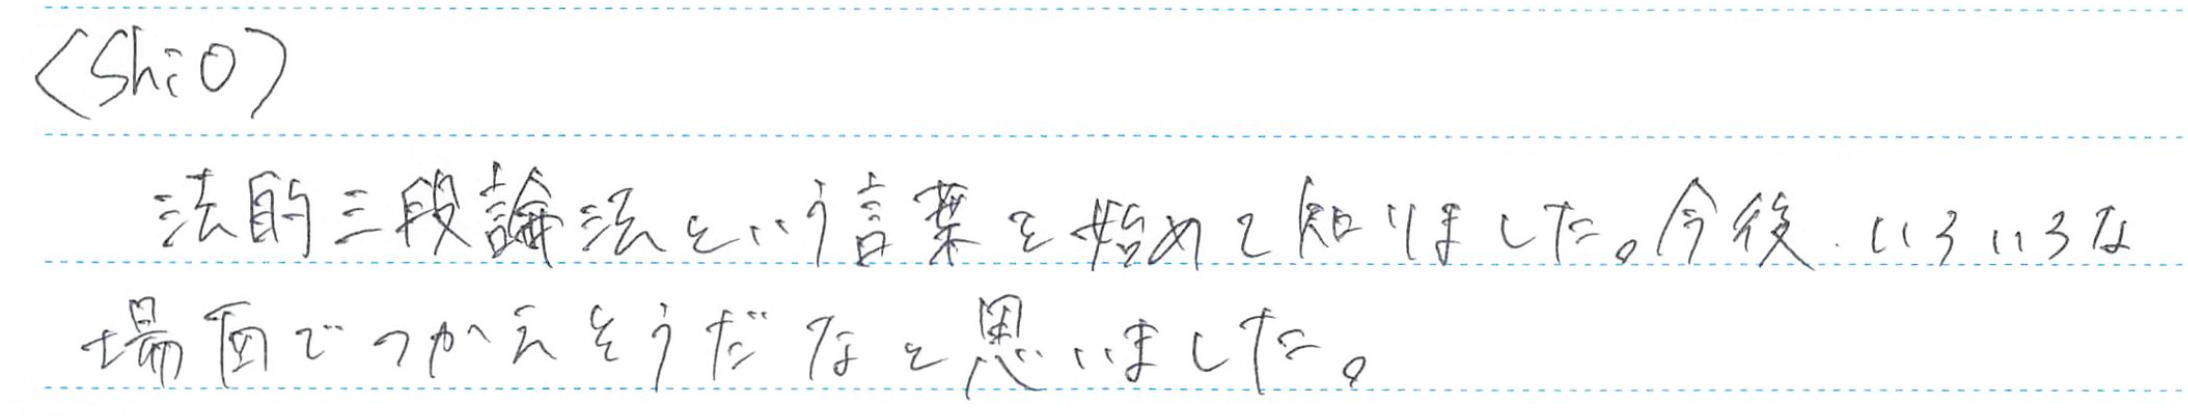 〈Shio〉
法的三段論法という言葉を始めて知りました。今後、いろいろな
場面でつかえそうだなと思いました。